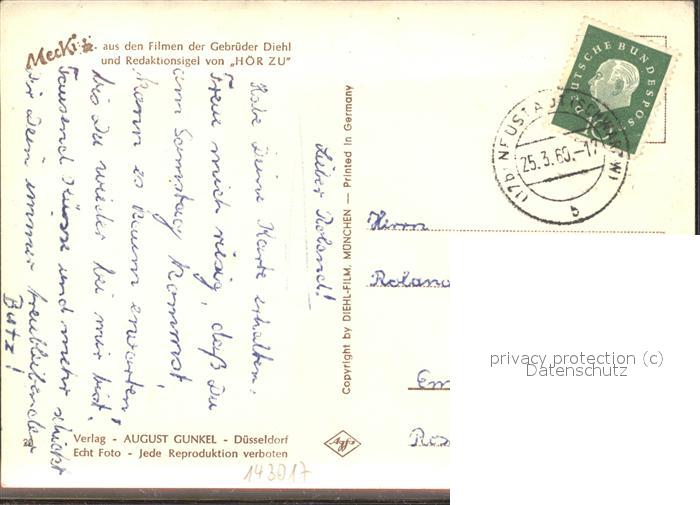 Mecki
aus den Filmen der Gebrüder Diehl
und Redaktionsigel von „HÖR ZU"
Lieber Roland!
Habe Deine Karte erhalten.
Freu mich riesig, daß Du
am Samstag kommst,
kann es kaum erwarten
bis Du wieder bei mir bist.
Tausend Küsse und mehr schickt
dir Dein immer treubleibender
Butz!
Copyright by DIEHL-FILM, MÜNCHEN — Printed in Germany
DEUTSCHE BUNDESPOS
(17b) NEUSTADT (SCHWARZW)
25.3.60.-17
b
Herrn
Roland
Em
Ros
privacy protection (c)
Datenschutz
Verlag - AUGUST GUNKEL - Düsseldorf
Echt Foto - Jede Reproduktion verboten
Agfa
143017